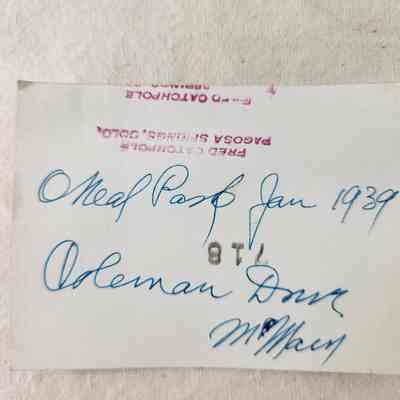 FRED CATCHPOLE
PAGOSA SPRINGS, COLO.
FRED CATCHPOLE
O Neal Park Jan 1939
718
Coleman